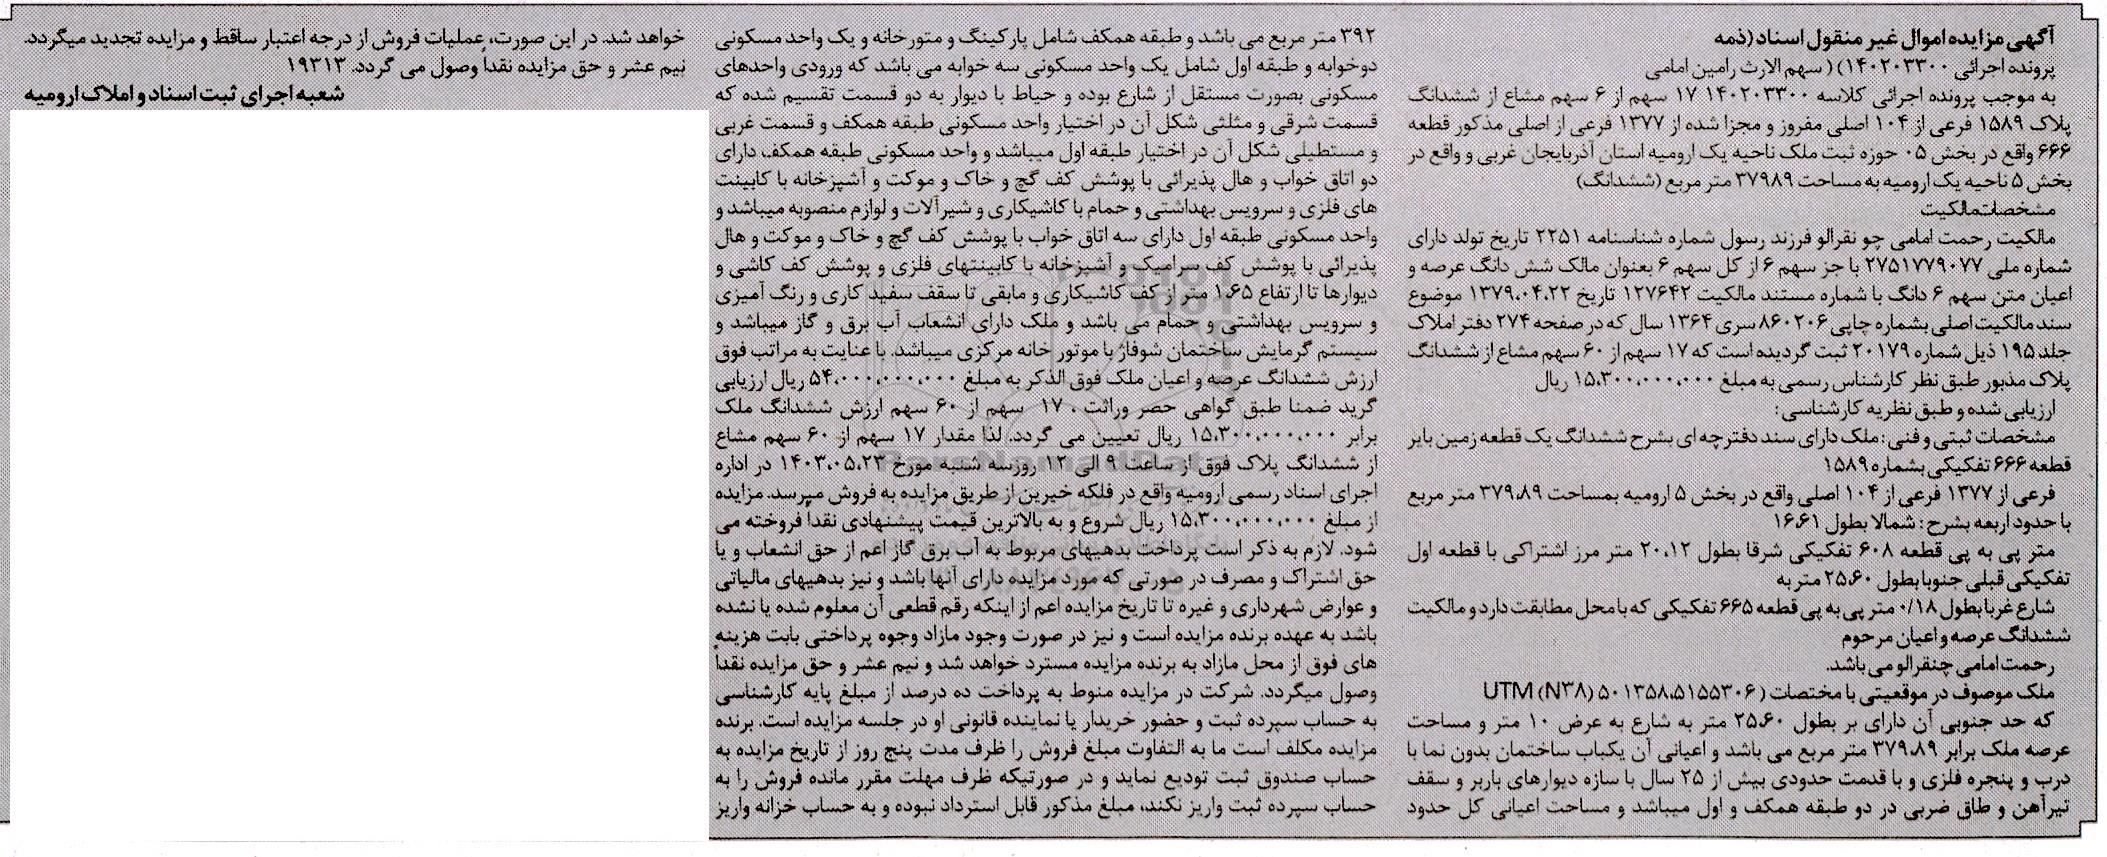 آگهی مزایده اموال غیر منقول اسناد (ذمه
پرونده اجرائی ۱۴۰۲۰۳۳۰۰) ( سهم الارث رامین امامی
به موجب پرونده اجرائی کلاسه ۱۴۰۲۰۳۳۰۰ ۱۷ سهم از ۶ سهم مشاع از ششدانگ
پلاک ۱۵۸۹ فرعی از ۱۰۴ اصلی مفروز و مجزا شده از ۱۳۷۷ فرعی از اصلی مذکور قطعه
۶۶۶ واقع در بخش ۰۵ حوزه ثبت ملک ناحیه یک ارومیه استان آذربایجان غربی و واقع در
بخش ۵ ناحیه یک ارومیه به مساحت ۳۷۹۸۹ متر مربع (ششدانگ)
مشخصات‌مالکیت
مالکیت رحمت امامی چو نقرالو فرزند رسول شماره شناسنامه ۲۲۵۱ تاریخ تولد دارای
شماره ملی ۲۷۵۱۷۷۹۰۷۷ با جز سهم ۶ از کل سهم ۶ بعنوان مالک شش دانگ عرصه و
اعیان متن سهم ۶ دانگ با شماره مستند مالکیت ۱۲۷۶۴۲ تاریخ ۱۳۷۹،۰۴،۲۲ موضوع
سند مالکیت اصلی بشماره چاپی ۸۶۰۲۰۶ سری ۱۳۶۴ سال که در صفحه ۲۷۴ دفتر املاک
جلد ۱۹۵ ذیل شماره ۲۰۱۷۹ ثبت گردیده است که ۱۷ سهم از ۶۰ سهم مشاع از ششدانگ
پلاک مذبور طبق نظر کارشناس رسمی به مبلغ ۱۵،۳۰۰،۰۰۰،۰۰۰ ریال
ارزیابی شده و طبق نظریه کارشناسی :
مشخصات ثبتی و فنی : ملک دارای سند دفترچه ای بشرح ششدانگ یک قطعه زمین بایر
قطعه ۶۶۶ تفکیکی بشماره ۱۵۸۹
فرعی از ۱۳۷۷ فرعی از ۱۰۴ اصلی واقع در بخش ۵ ارومیه بمساحت ۳۷۹،۸۹ متر مربع
با حدود اربعه بشرح : شمالا بطول ۱۶،۶۱
متر پی به پی قطعه ۶۰۸ تفکیکی شرقا بطول ۲۰،۱۲ متر مرز اشتراکی با قطعه اول
تفکیکی قبلی جنوبا بطول ۲۵،۶۰ متر به
شارع غربا بطول ۰/۱۸ متر پی به پی قطعه ۶۶۵ تفکیکی که با محل مطابقت دارد و مالکیت
ششدانگ عرصه و اعیان مرحوم
رحمت امامی چنقرالو می باشد.
ملک موصوف در موقعیتی با مختصات ( ۵۰۱۳۵۸،۵۱۵۵۳۰۶ UTM (N۳۸)
که حد جنوبی آن دارای بر بطول ۲۵،۶۰ متر به شارع به عرض ۱۰ متر و مساحت
عرصه ملک برابر ۳۷۹،۸۹ متر مربع می باشد و اعیانی آن یکباب ساختمان بدون نما با
درب و پنجره فلزی و با قدمت حدودی بیش از ۲۵ سال با سازه دیوارهای باربر و سقف
تیرآهن و طاق ضربی در دو طبقه همکف و اول میباشد و مساحت اعیانی کل حدود
۳۹۲ متر مربع می باشد و طبقه همکف شامل پارکینگ و متورخانه و یک واحد مسکونی
دوخوابه و طبقه اول شامل یک واحد مسکونی سه خوابه می باشد که ورودی واحدهای
مسکونی بصورت مستقل از شارع بوده و حیاط با دیوار به دو قسمت تقسیم شده که
قسمت شرقی و مثلثی شکل آن در اختیار واحد مسکونی طبقه همکف و قسمت غربی
و مستطیلی شکل آن در اختیار طبقه اول میباشد و واحد مسکونی طبقه همکف، دارای
دو اتاق خواب و هال پذیرائی با پوشش کف گچ و خاک و موکت و آشپزخانه با کابینت
های فلزی و سرویس بهداشتی و حمام با کاشیکاری و شیرآلات و لوازم منصوبه میباشد و
واحد مسکونی طبقه اول دارای سه اتاق خواب با پوشش کف گچ و خاک و موکت و هال
پذیرائی با پوشش کف سرامیک و آشپزخانه با کابینتهای فلزی و پوشش کف کاشی و
دیوارها تا ارتفاع ۱،۶۵ متر از کف کاشیکاری و مابقی تا سقف سفید کاری و رنگ آمیزی
و سرویس بهداشتی و حمام می باشد و ملک دارای انشعاب آب برق و گاز میباشد و
سیستم گرمایش ساختمان شوفاژ با موتور خانه مرکزی میباشد. با عنایت به مراتب فوق
ارزش ششدانگ عرصه و اعیان ملک فوق الذکر به مبلغ ۵۴،۰۰۰،۰۰۰،۰۰۰ ریال ارزیابی
گرید ضمنا طبق گواهی حصر وراثت ، ۱۷ سهم از ۶۰ سهم ارزش ششدانگ ملک
برابر ۱۵،۳۰۰،۰۰۰،۰۰۰ ریال تعیین می گردد. لذا مقدار ۱۷ سهم از ۶۰ سهم مشاع
از ششدانگ پلاک فوق از ساعت ۹ الی ۱۲ روزسه شنبه مورخ ۱۴۰۳،۰۵،۲۳ در اداره
اجرای اسناد رسمی ارومیه واقع در فلکه خیرین از طریق مزایده به فروش میرسد. مزایده
از مبلغ ۱۵،۳۰۰،۰۰۰،۰۰۰ ریال شروع و به بالاترین قیمت پیشنهادی نقداً فروخته می
شود. لازم به ذکر است پرداخت بدهیهای مربوط به آب برق گاز اعم از حق انشعاب و یا
حق اشتراک و مصرف در صورتی که مورد مزایده دارای آنها باشد و نیز بدهیهای مالیاتی
و عوارض شهرداری و غیره تا تاریخ مزایده اعم از اینکه رقم قطعی آن معلوم شده یا نشده
باشد به عهده برنده مزایده است و نیز در صورت وجود مازاد وجوه پرداختی بابت هزینه
های فوق از محل مازاد به برنده مزایده مسترد خواهد شد و نیم عشر و حق مزایده نقداً
وصول میگردد. شرکت در مزایده منوط به پرداخت ده درصد از مبلغ پایه کارشناسی
به حساب سپرده ثبت و حضور خریدار یا نماینده قانونی او در جلسه مزایده است. برنده
مزایده مکلف است ما به التفاوت مبلغ فروش را ظرف مدت پنج روز از تاریخ مزایده به
حساب صندوق ثبت تودیع نماید و در صورتیکه ظرف مهلت مقرر مانده فروش را به
حساب سپرده ثبت واریز نکند، مبلغ مذکور قابل استرداد نبوده و به حساب خزانه واریز
خواهد شد. در این صورت، عملیات فروش از درجه اعتبار ساقط و مزایده تجدید میگردد.
نیم عشر و حق مزایده نقداً وصول می گردد. ۱۹۳۱۳
شعبه اجرای ثبت اسناد و املاک ارومیه